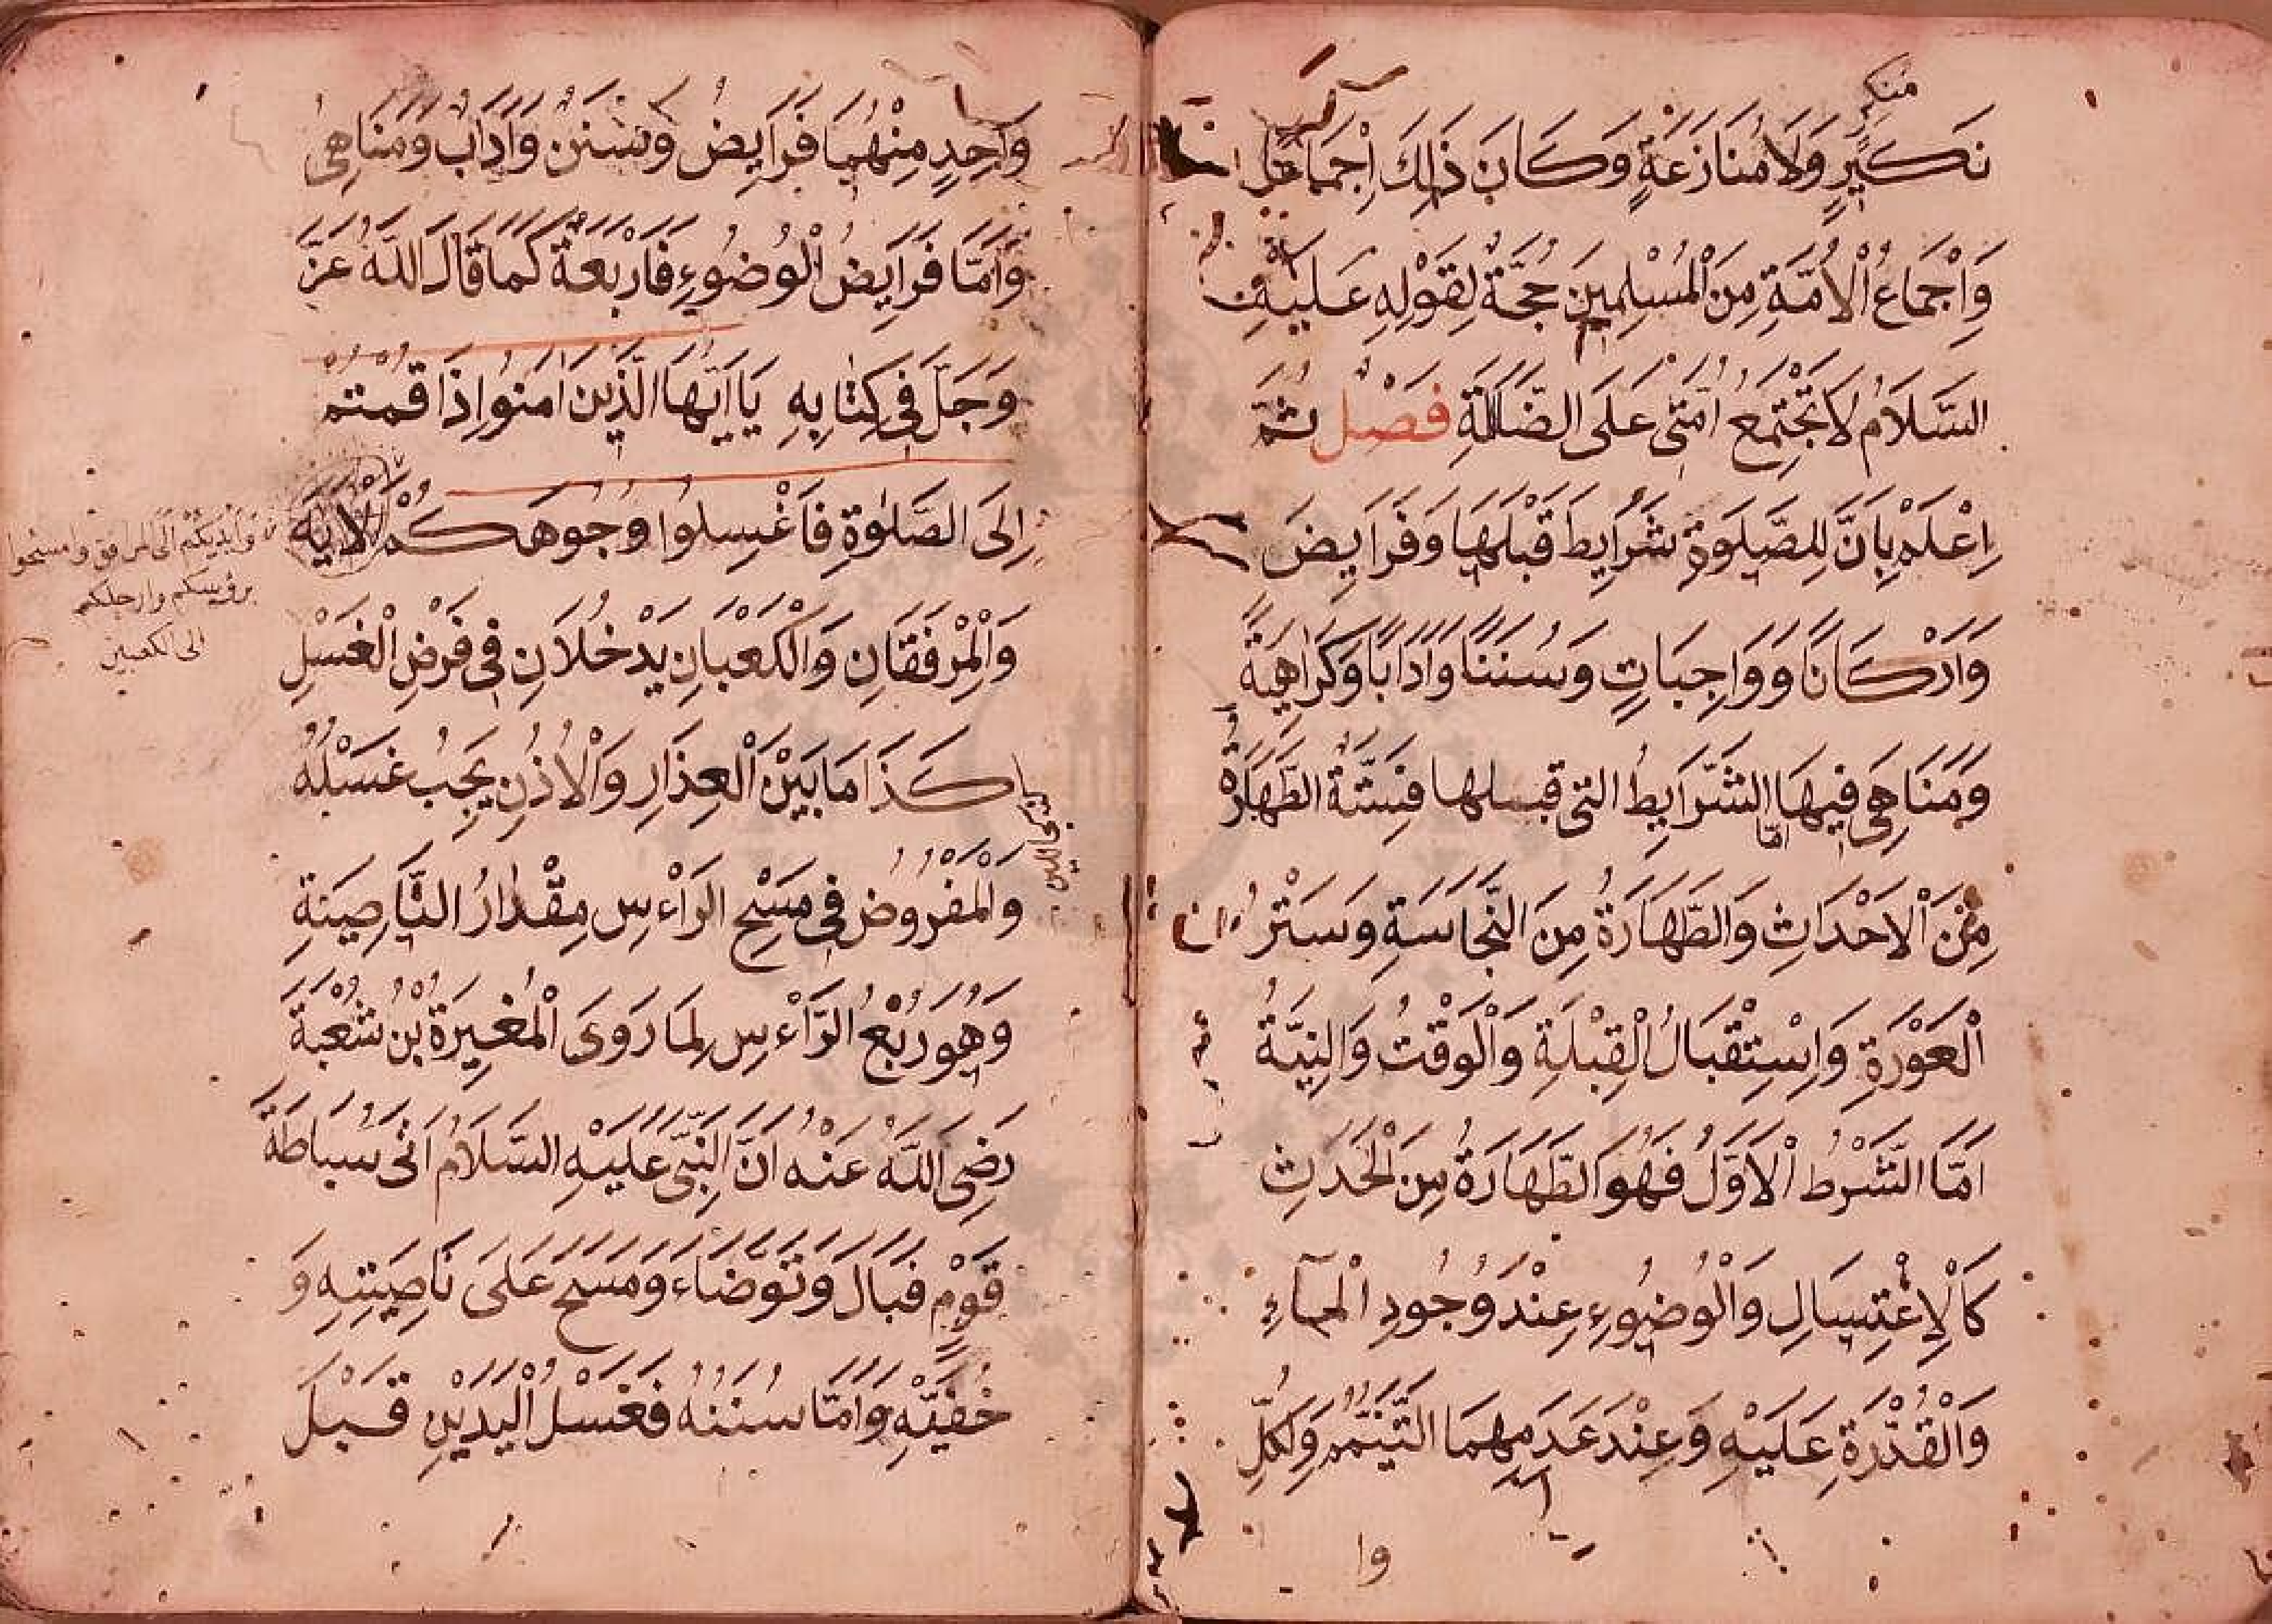 منكر
نَكِيرٍ وَلَا مُنَازَعَةٍ وَكَانَ ذَلِكَ اِجْمَاعًا
وَاِجْمَاعُ الْاُمَّةِ مِنَ الْمُسْلِمِينَ حُجَّةٌ لِقَوْلِهِ عَلَيْهِ
السَّلَامُ لَا تَجْتَمِعُ اُمَّتِى عَلَى الضَّلَالَةِ فَصْلٌ ثُمَّ
اِعْلَمْ بِاَنَّ لِلصَّلَوةِ شَرَايِطَ قَبْلَهَا وَفَرَايِضَ
وَاَرْكَانًا وَوَاجِبَاتٍ وَسُنَنًا وَاٰدَابًا وَكَرَاهِيَةً
وَمَنَاهِىَ فِيهَا الشَّرَايِطُ التى قبلها فَسِتَّةٌ الطَّهَارَةُ
امّا
مِنَ الْاَحْدَاثِ وَالطَّهَارَةُ مِنَ النَّجَاسَةِ وَسَتْرُ
الْعَوْرَةِ وَاِسْتِقْبَالُ الْقِبْلَةِ وَالْوَقْتُ وَالنِيَّةُ
اَمَّا الشَّرْطُ الْاَوَّلُ فَهُوَ الطَّهَارَةُ مِنَ الْحَدَثِ
كَالْاِغْتِسَالِ وَالْوُضُوءِ عِنْدَ وُجُودِ الْمَآءِ
وَالْقُدْرَةِ عَلَيْهِ وَعِنْدَ عَدَمِهِمَا التَّيَمُّمُ وَلِكُلِّ
وا
وَاحِدٍ مِنْهُمَا فَرَايِضُ وَسُنَنٌ وَاٰدَابٌ وَمَنَاهِىُ
وَاَمَّا فَرَايِضُ الْوُضُوءِ فَاَرْبَعَةٌ كَمَا قَالَ اللّٰهُ عَزَّ
وَجَلَّ فِى كِتَابِهِ يَا اَيُّهَا الَّذِينَ اٰمَنُوا اِذَا قُمْتُمْ
اِلَى الصَّلٰوةِ فَاغْسِلُوا وُجُوهَكُمْ الْاٰيَة
وَاَيْدِيَكُمْ اِلَى المرافق وامسحوا
برؤسكم وارجلكم
الى الكعبين
وَالْمِرْفَقَانِ وَالْكَعْبَانِ يَدْخُلَانِ فِى فَرْضِ الْغَسْلِ
كَذَا مَا بَيْنَ الْعِذَارِ وَالْاُذُنِ يَجِبُ غَسْلُهُ
وَالْمَفْرُوضُ فِى مَسْحِ الرَّاْءسِ مِقْدَارُ النَّاصِيَةِ
وَهُوَ رُبْعُ الرَّاْءسِ لِمَا رَوَى الْمُغِيرَةُ بْنُ شُعْبَةَ
رَضِىَ اللّٰهُ عَنْهُ اَنَّ النَّبِىَّ عَلَيْهِ السَّلَامُ اَتَى سُبَاطَةَ
قَوْمٍ فَبَالَ وَتَوَضَّاءَ وَمَسَحَ عَلَى نَاصِيَتِهِ وَ
خُفَّيْهِ وَاَمَّا سُنَنُهُ فَغَسْلُ الْيَدَيْنِ قَبْلَ